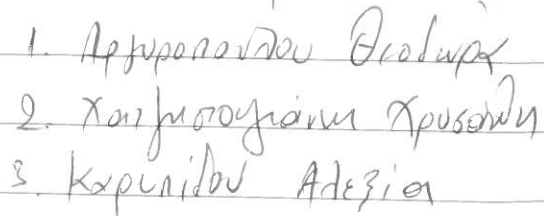 1. Αργυροπούλου Θεοδώρα
2. Χατζηπογιάννη Χρυσάνθη
3. Καρυπίδου Αλεξία